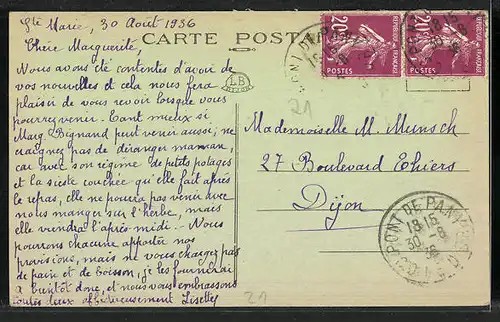 Ste Marie, 30 Août 1936
Chère Marguerite,
Nous avons été contentes d'avoir de
vos nouvelles et cela nous fera
plaisir de vous revoir lorsque vous
pourrez venir. Tant mieux si
Marg. Bignand peut venir aussi; ne
craignez pas de déranger maman,
car avec son régime de petits potages
et la sieste couchée qu'elle fait après
le repas, elle ne pourra pas venir avec
nous manger sur l'herbe, mais
elle viendra l'après-midi. Nous
pourrons chacune apporter nos
provisions, mais ne vous chargez pas
de pain et de boisson, je les fournirai
à bientôt donc, et nous vous embrassons
toutes deux affectueusement Lisette
CARTE POSTALE
LB
21
Mademoiselle M. Munsch
27 Boulevard Thiers
Dijon
21
20c
POSTES
REPUBLIQUE FRANÇAISE
20c
POSTES
PONT DE PANY
18-15
30-8
36
CÔTE D'OR